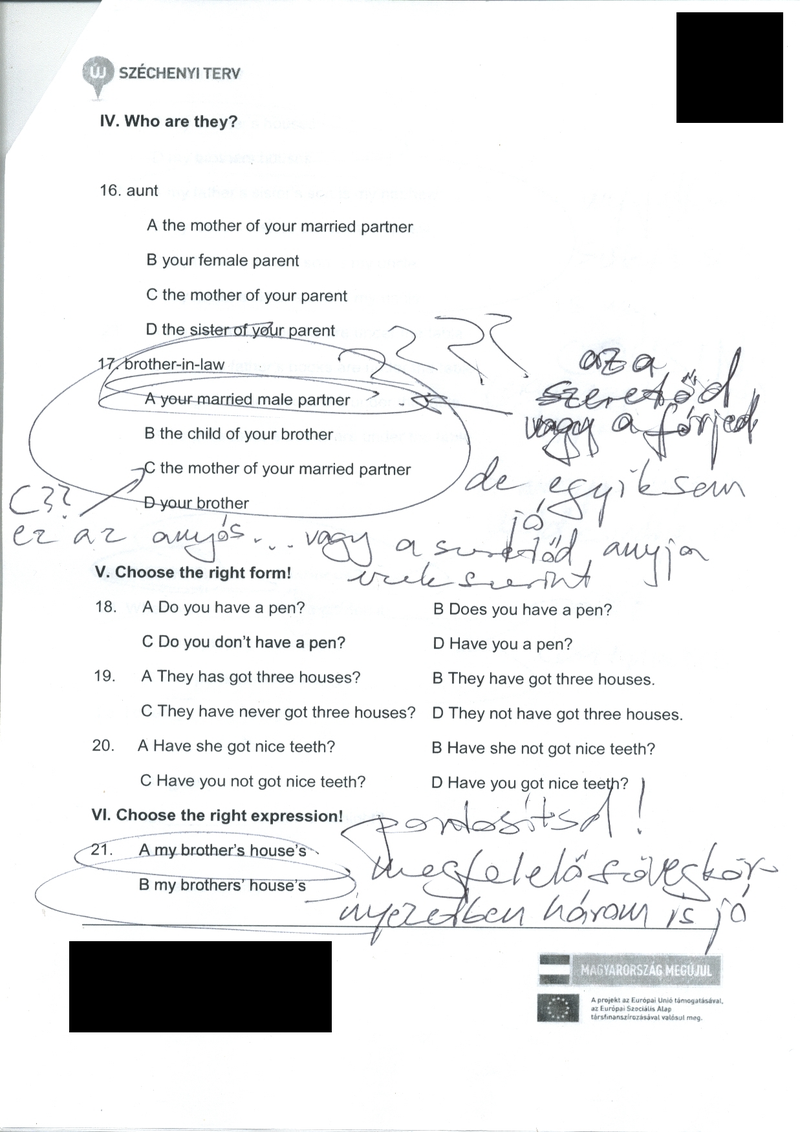 ÚJ SZÉCHENYI TERV
IV. Who are they?
16. aunt
A the mother of your married partner
B your female parent
C the mother of your parent
D the sister of your parent
???
17. brother-in-law
az a
A your married male partner
szeretőd
vagy a férjed
B the child of your brother
C the mother of your married partner
de egyiksem
jó
C??
D your brother
ez az anyós... vagy a szeretőd anyja
V. Choose the right form!
18. A Do you have a pen? B Does you have a pen?
C Do you don't have a pen? D Have you a pen?
19. A They has got three houses? B They have got three houses.
C They have never got three houses? D They not have got three houses.
20. A Have she got nice teeth? B Have she not got nice teeth?
C Have you not got nice teeth? D Have you got nice teeth?
VI. Choose the right expression!
pontosítsd!
21. A my brother's house's
megfelelő szövegkör-
B my brothers' house's
nyezetben három is jó
MAGYARORSZÁG MEGÚJUL
A projekt az Európai Unió támogatásával,
az Európai Szociális Alap
társfinanszírozásával valósul meg.